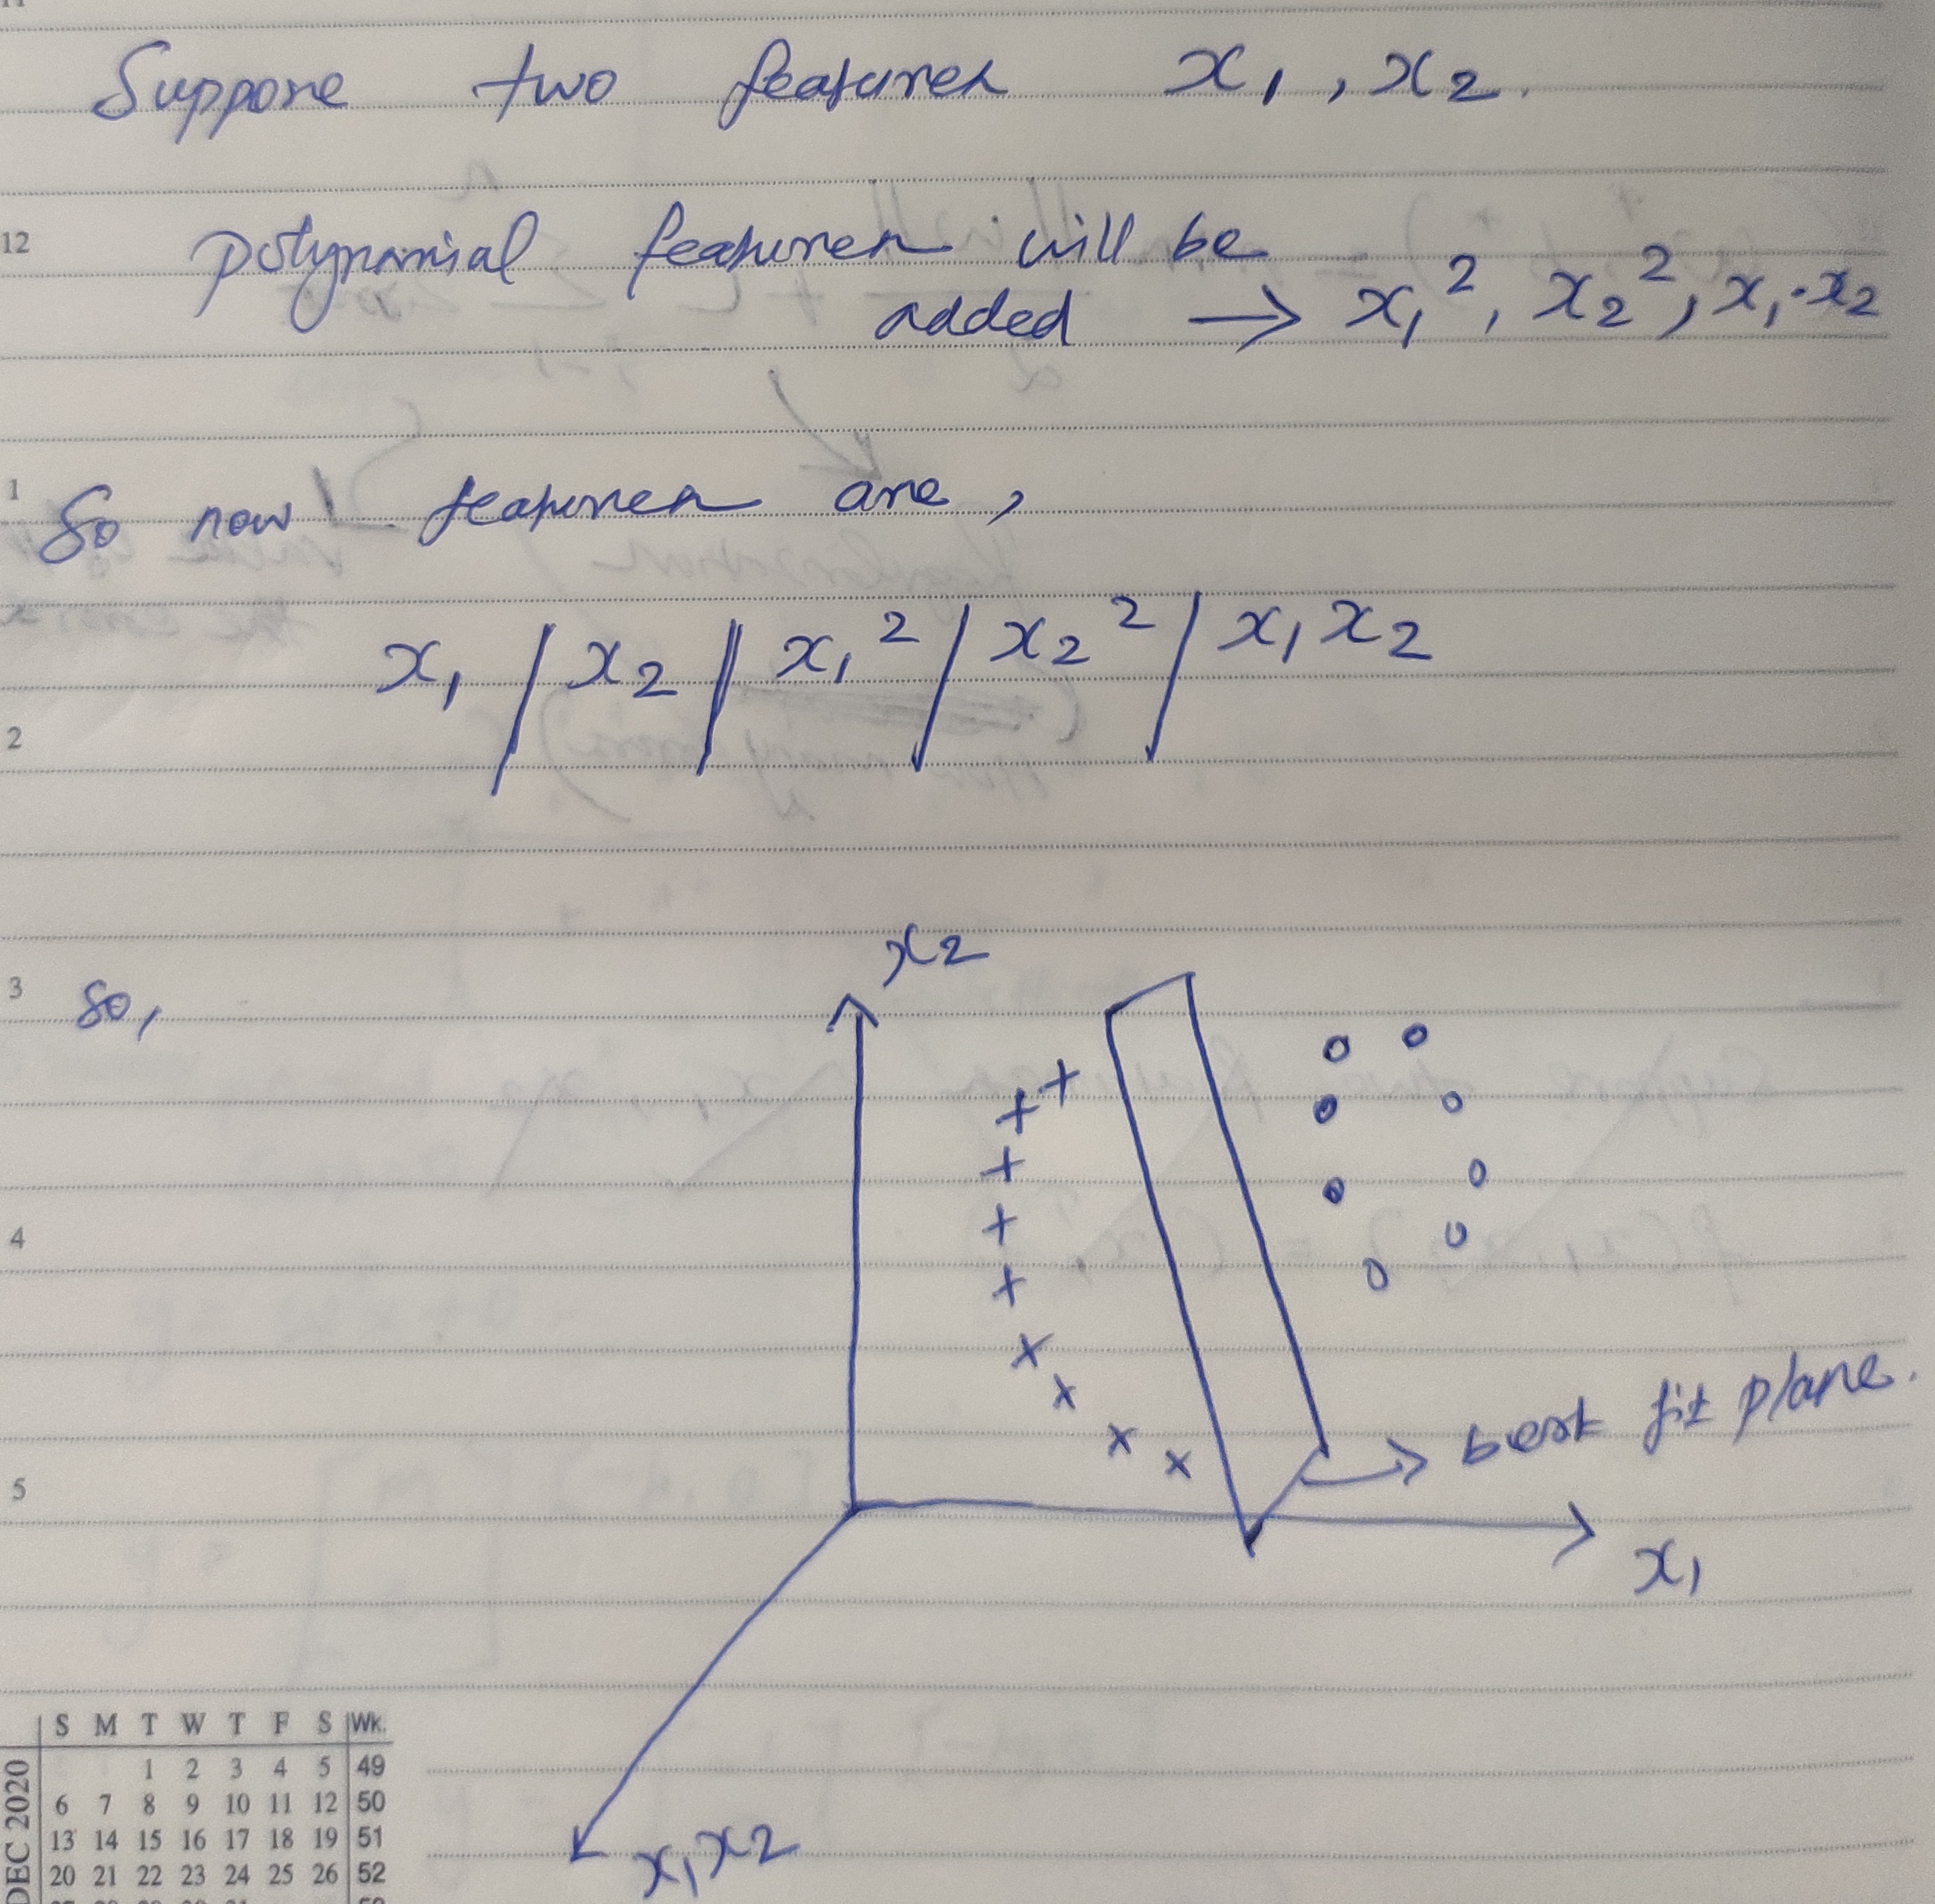 Suppose two features x₁, x₂.
12
polynomial features will be
added → x₁², x₂², x₁·x₂
1
So now features are,
x₁ / x₂ / x₁² / x₂² / x₁x₂
2
x₂
3
so,
4
best fit plane.
5
x₁
x₁x₂
S M T W T F S Wk.
DEC 2020
1 2 3 4 5 49
6 7 8 9 10 11 12 50
13 14 15 16 17 18 19 51
20 21 22 23 24 25 26 52